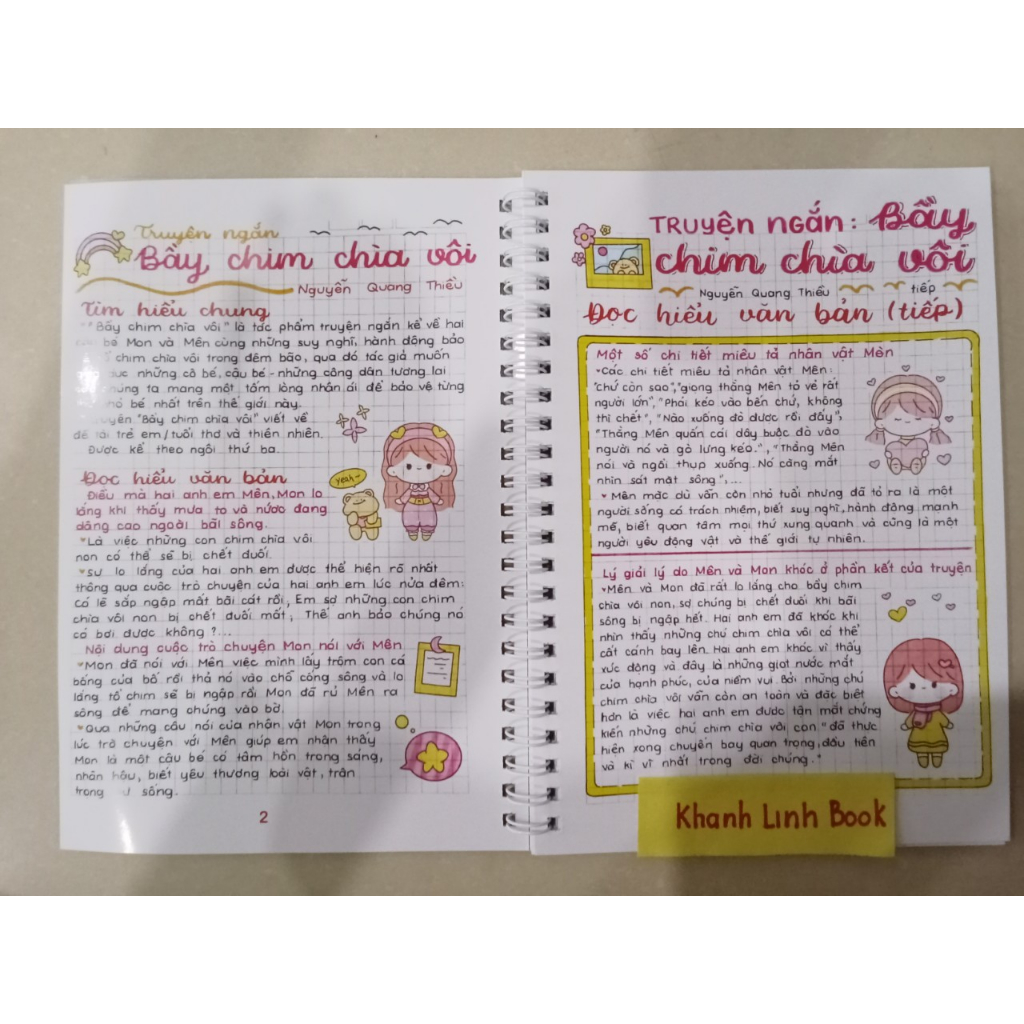 Truyện ngắn
Bầy chim chìa vôi
Nguyễn Quang Thiều
Tìm hiểu chung
"Bầy chim chìa vôi" là tác phẩm truyện ngắn kể về hai
bé Mon và Mên cùng những suy nghĩ, hành động bảo
chim chìa vôi trong đêm bão, qua đó tác giả muốn
những cô bé, cậu bé - những công dân tương lai
ta mang một tấm lòng nhân ái để bảo vệ từng
bé nhất trên thế giới này.
"Bầy chim chìa vôi" viết về
đề tài trẻ em/tuổi thơ và thiên nhiên.
Được kể theo ngôi thứ ba.
Đọc hiểu văn bản
Điều mà hai anh em Mên, Mon lo
lắng khi thấy mưa to và nước đang
dâng cao ngoài bãi sông.
Là việc những con chim chìa vôi
non có thể sẽ bị chết đuối.
sự lo lắng của hai anh em được thể hiện rõ nhất
thông qua cuộc trò chuyện của hai anh em lúc nửa đêm:
có lẽ sắp ngập mất bãi cát rồi, Em sợ những con chim
chìa vôi non bị chết đuối mất, Thế anh bảo chúng nó
có bơi được không ?...
Nội dung cuộc trò chuyện Mon nói với Mên
Mon đã nói với Mên việc mình lấy trộm con cá
bống của bố rồi thả nó vào chỗ cống sông và lo
lắng tổ chim sẽ bị ngập rồi Mon đã rủ Mên ra
sông để mang chúng vào bờ.
Qua những câu nói của nhân vật Mon trong
lúc trò chuyện với Mên giúp em nhận thấy
Mon là một cậu bé có tâm hồn trong sáng,
nhân hậu, biết yêu thương loài vật, trân
trọng sự sống.
yeah~
2
Truyện ngắn: Bầy
chim chìa vôi
Nguyễn Quang Thiều tiếp
Đọc hiểu văn bản (tiếp)
Một số chi tiết miêu tả nhân vật Mên
Các chi tiết miêu tả nhân vật Mên:
"chứ còn sao", "giọng thằng Mên tỏ vẻ rất
người lớn", "Phải kéo vào bến chứ, không
thì chết", "Nào xuống đò được rồi đấy",
"Thằng Mên quấn cái dây buộc đò vào
người nó và gò lưng kéo.", "Thằng Mên
nói và ngồi thụp xuống. Nó căng mắt
nhìn sát mặt sông",...
Mên mặc dù vẫn còn nhỏ tuổi nhưng đã tỏ ra là một
người sống có trách nhiệm, biết suy nghĩ, hành động mạnh
mẽ, biết quan tâm mọi thứ xung quanh và cũng là một
người yêu động vật và thế giới tự nhiên.
Lý giải lý do Mên và Mon khóc ở phần kết của truyện
Mên và Mon đã rất lo lắng cho bầy chim
chìa vôi non, sợ chúng bị chết đuối khi bãi
sông bị ngập hết. Hai anh em đã khóc khi
nhìn thấy những chú chim chìa vôi có thể
cất cánh bay lên. Hai anh em khóc vì thấy
xúc động và đây là những giọt nước mắt
của hạnh phúc, của niềm vui. Bởi những chú
chim chìa vôi vẫn còn an toàn và đặc biệt
hơn là việc hai anh em được tận mắt chứng
kiến những chú chim chìa vôi con "đã thực
hiện xong chuyến bay quan trọng, đầu tiên
và kì vĩ nhất trong đời chúng."
Khanh Linh Book